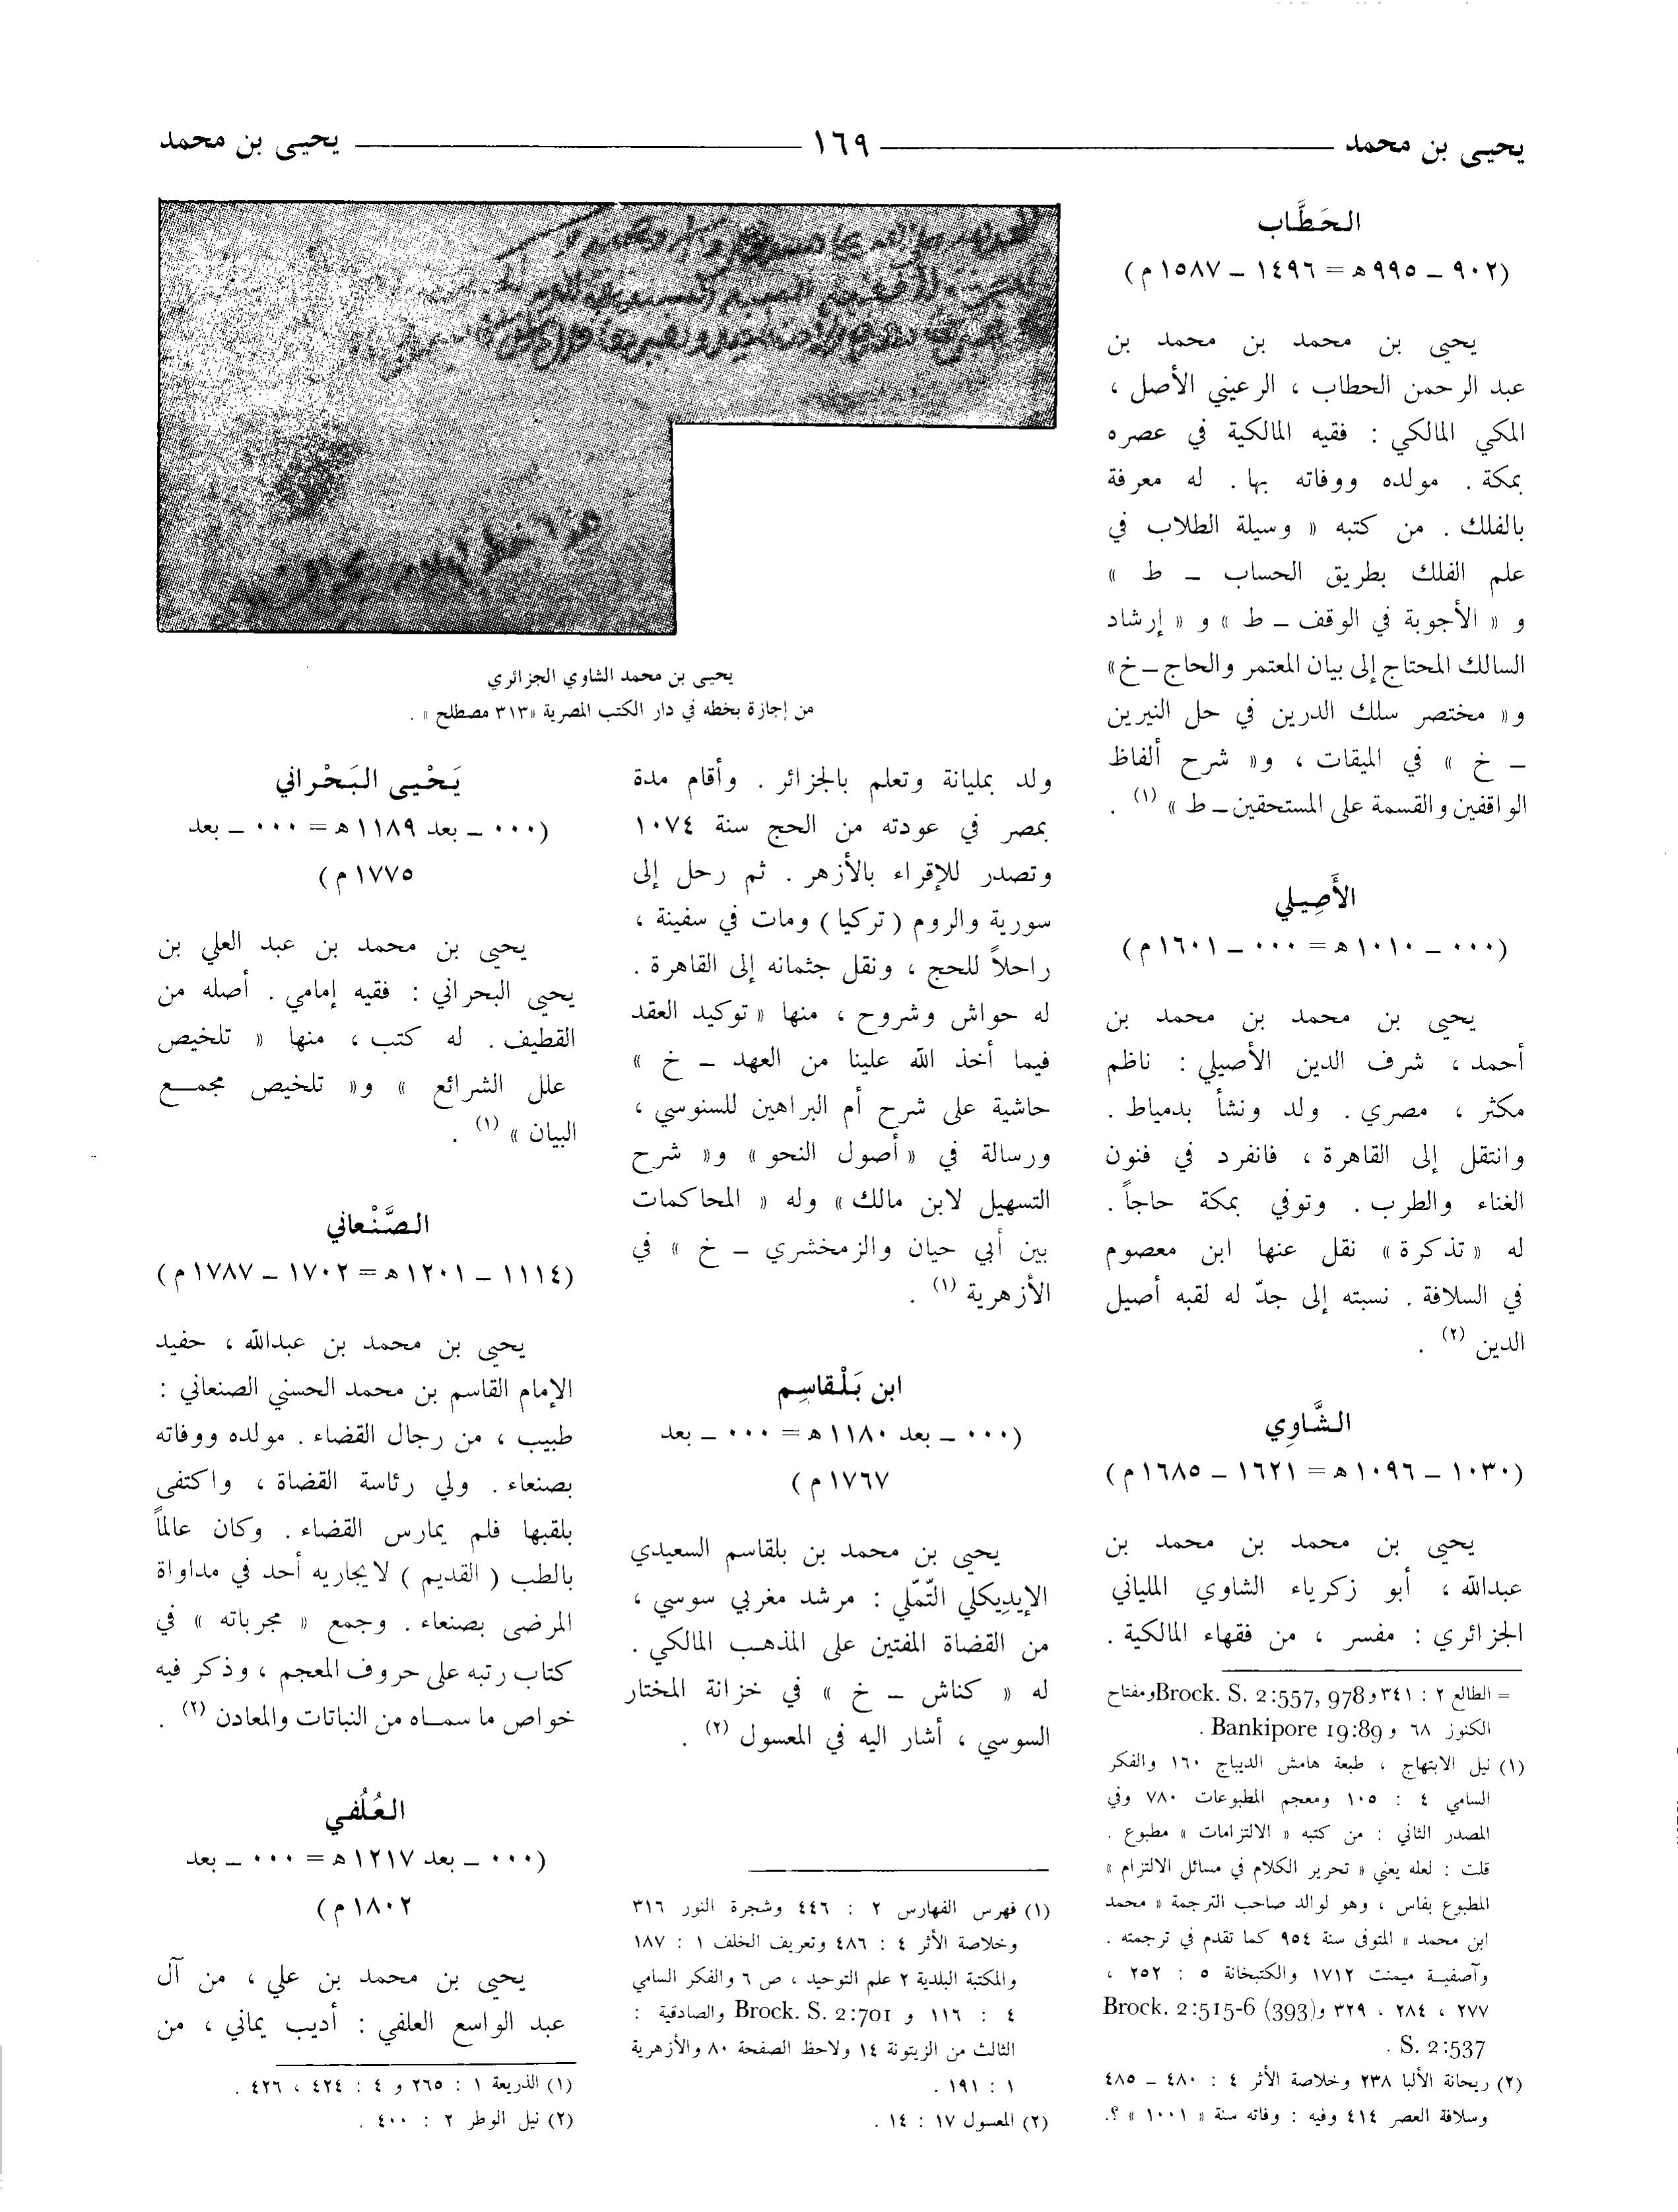 يحيى بن محمد ١٦٩ يحيى بن محمد
الحَطَّاب
(٩٠٢ ــ ٩٩٥ ه = ١٤٩٦ ــ ١٥٨٧ م)
يحيى بن محمد بن محمد بن
عبد الرحمن الحطاب ، الرعيني الأصل ،
المكي المالكي : فقيه المالكية في عصره
بمكة . مولده ووفاته بها . له معرفة
بالفلك . من كتبه « وسيلة الطلاب في
علم الفلك بطريق الحساب ــ ط »
و « الأجوبة في الوقف ــ ط » و « إرشاد
السالك المحتاج إلى بيان المعتمر والحاج ــ خ»
و« مختصر سلك الدرين في حل النيرين
ــ خ » في الميقات ، و« شرح ألفاظ
الواقفين والقسمة على المستحقين ــ ط » (١) .
الأَصِيلي
(٠٠٠ ــ ١٠١٠ ه = ٠٠٠ ــ ١٦٠١ م)
يحيى بن محمد بن محمد بن
أحمد ، شرف الدين الأصيلي : ناظم
مكثر ، مصري . ولد ونشأ بدمياط .
وانتقل إلى القاهرة ، فانفرد في فنون
الغناء والطرب . وتوفي بمكة حاجاً .
له «تذكرة» نقل عنها ابن معصوم
في السلافة . نسبته إلى جدّ له لقبه أصيل
الدين (٢) .
الشَّاوِي
(١٠٣٠ ــ ١٠٩٦ ه = ١٦٢١ ــ ١٦٨٥ م)
يحيى بن محمد بن محمد بن
عبدالله ، أبو زكرياء الشاوي الملياني
الجزائري : مفسر ، من فقهاء المالكية .
= الطالع ٢ : ٣٤١ و Brock. S. 2:557, 978 ومفتاح
الكنوز ٦٨ و Bankipore 19:89 .
(١) نيل الابتهاج ، طبعة هامش الديباج ١٦٠ والفكر
السامي ٤ : ١٠٥ ومعجم المطبوعات ٧٨٠ وفي
المصدر الثاني : من كتبه « الالتزامات » مطبوع .
قلت : لعله يعني « تحرير الكلام في مسائل الالتزام »
المطبوع بفاس ، وهو لوالد صاحب الترجمة « محمد
ابن محمد » المتوفى سنة ٩٥٤ كما تقدم في ترجمته .
وآصفية ميمنت ١٧١٢ والكتبخانة ٥ : ٢٥٢ ،
٢٧٧ ، ٢٨٤ ، ٣٢٩ و Brock. 2:515-6 (393)
S. 2:537 .
(٢) ريحانة الألبا ٢٣٨ وخلاصة الأثر ٤ : ٤٨٠ ــ ٤٨٥
وسلافة العصر ٤١٤ وفيه : وفاته سنة « ١٠٠١ » ؟.
يحيى بن محمد الشاوي الجزائري
من إجازة بخطه في دار الكتب المصرية «٣١٣ مصطلح » .
ولد بمليانة وتعلم بالجزائر . وأقام مدة
بمصر في عودته من الحج سنة ١٠٧٤
وتصدر للإقراء بالأزهر . ثم رحل إلى
سورية والروم (تركيا) ومات في سفينة ،
راحلاً للحج ، ونقل جثمانه إلى القاهرة .
له حواش وشروح ، منها «توكيد العقد
فيما أخذ الله علينا من العهد ــ خ »
حاشية على شرح أم البراهين للسنوسي ،
ورسالة في «أصول النحو» و« شرح
التسهيل لابن مالك» وله « المحاكمات
بين أبي حيان والزمخشري ــ خ » في
الأزهرية (١) .
ابن بَلْقاسِم
(٠٠٠ ــ بعد ١١٨٠ ه = ٠٠٠ ــ بعد
١٧٦٧ م)
يحيى بن محمد بن بلقاسم السعيدي
الإيدِيكلي التّمّلي : مرشد مغربي سوسي ،
من القضاة المفتين على المذهب المالكي .
له « كناش ــ خ » في خزانة المختار
السوسي ، أشار اليه في المعسول (٢) .
(١) فهرس الفهارس ٢ : ٤٤٦ وشجرة النور ٣١٦
وخلاصة الأثر ٤ : ٤٨٦ وتعريف الخلف ١ : ١٨٧
والمكتبة البلدية ٢ علم التوحيد ، ص ٦ والفكر السامي
٤ : ١١٦ و Brock. S. 2:701 والصادقية :
الثالث من الزيتونة ١٤ ولاحظ الصفحة ٨٠ والأزهرية
١ : ١٩١ .
(٢) المعسول ١٧ : ١٤ .
يَحْيى البَحْراني
(٠٠٠ ــ بعد ١١٨٩ ه = ٠٠٠ ــ بعد
١٧٧٥ م)
يحيى بن محمد بن عبد العلي بن
يحيى البحراني : فقيه إمامي . أصله من
القطيف . له كتب ، منها « تلخيص
علل الشرائع » و« تلخيص مجمـع
البيان » (١) .
الصَّنْعاني
(١١١٤ ــ ١٢٠١ ه = ١٧٠٢ ــ ١٧٨٧ م)
يحيى بن محمد بن عبدالله ، حفيد
الإمام القاسم بن محمد الحسني الصنعاني :
طبيب ، من رجال القضاء . مولده ووفاته
بصنعاء . ولي رئاسة القضاة ، واكتفى
بلقبها فلم يمارس القضاء . وكان عالماً
بالطب ( القديم ) لا يجاريه أحد في مداواة
المرضى بصنعاء . وجمع « مجرباته » في
كتاب رتبه على حروف المعجم ، وذكر فيه
خواص ما سمـاه من النباتات والمعادن (٢) .
العُلُفي
(٠٠٠ ــ بعد ١٢١٧ ه = ٠٠٠ ــ بعد
١٨٠٢ م)
يحيى بن محمد بن علي ، من آل
عبد الواسع العلفي : أديب يماني ، من
(١) الذريعة ١ : ٢٦٥ و ٤ : ٤٢٤ ، ٤٢٦ .
(٢) نيل الوطر ٢ : ٤٠٠ .